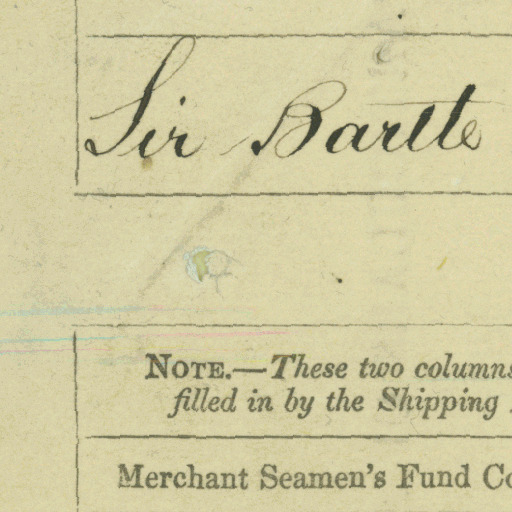 Sir Bartle
NOTE.—These two columns
filled in by the Shipping
Merchant Seamen's Fund Co